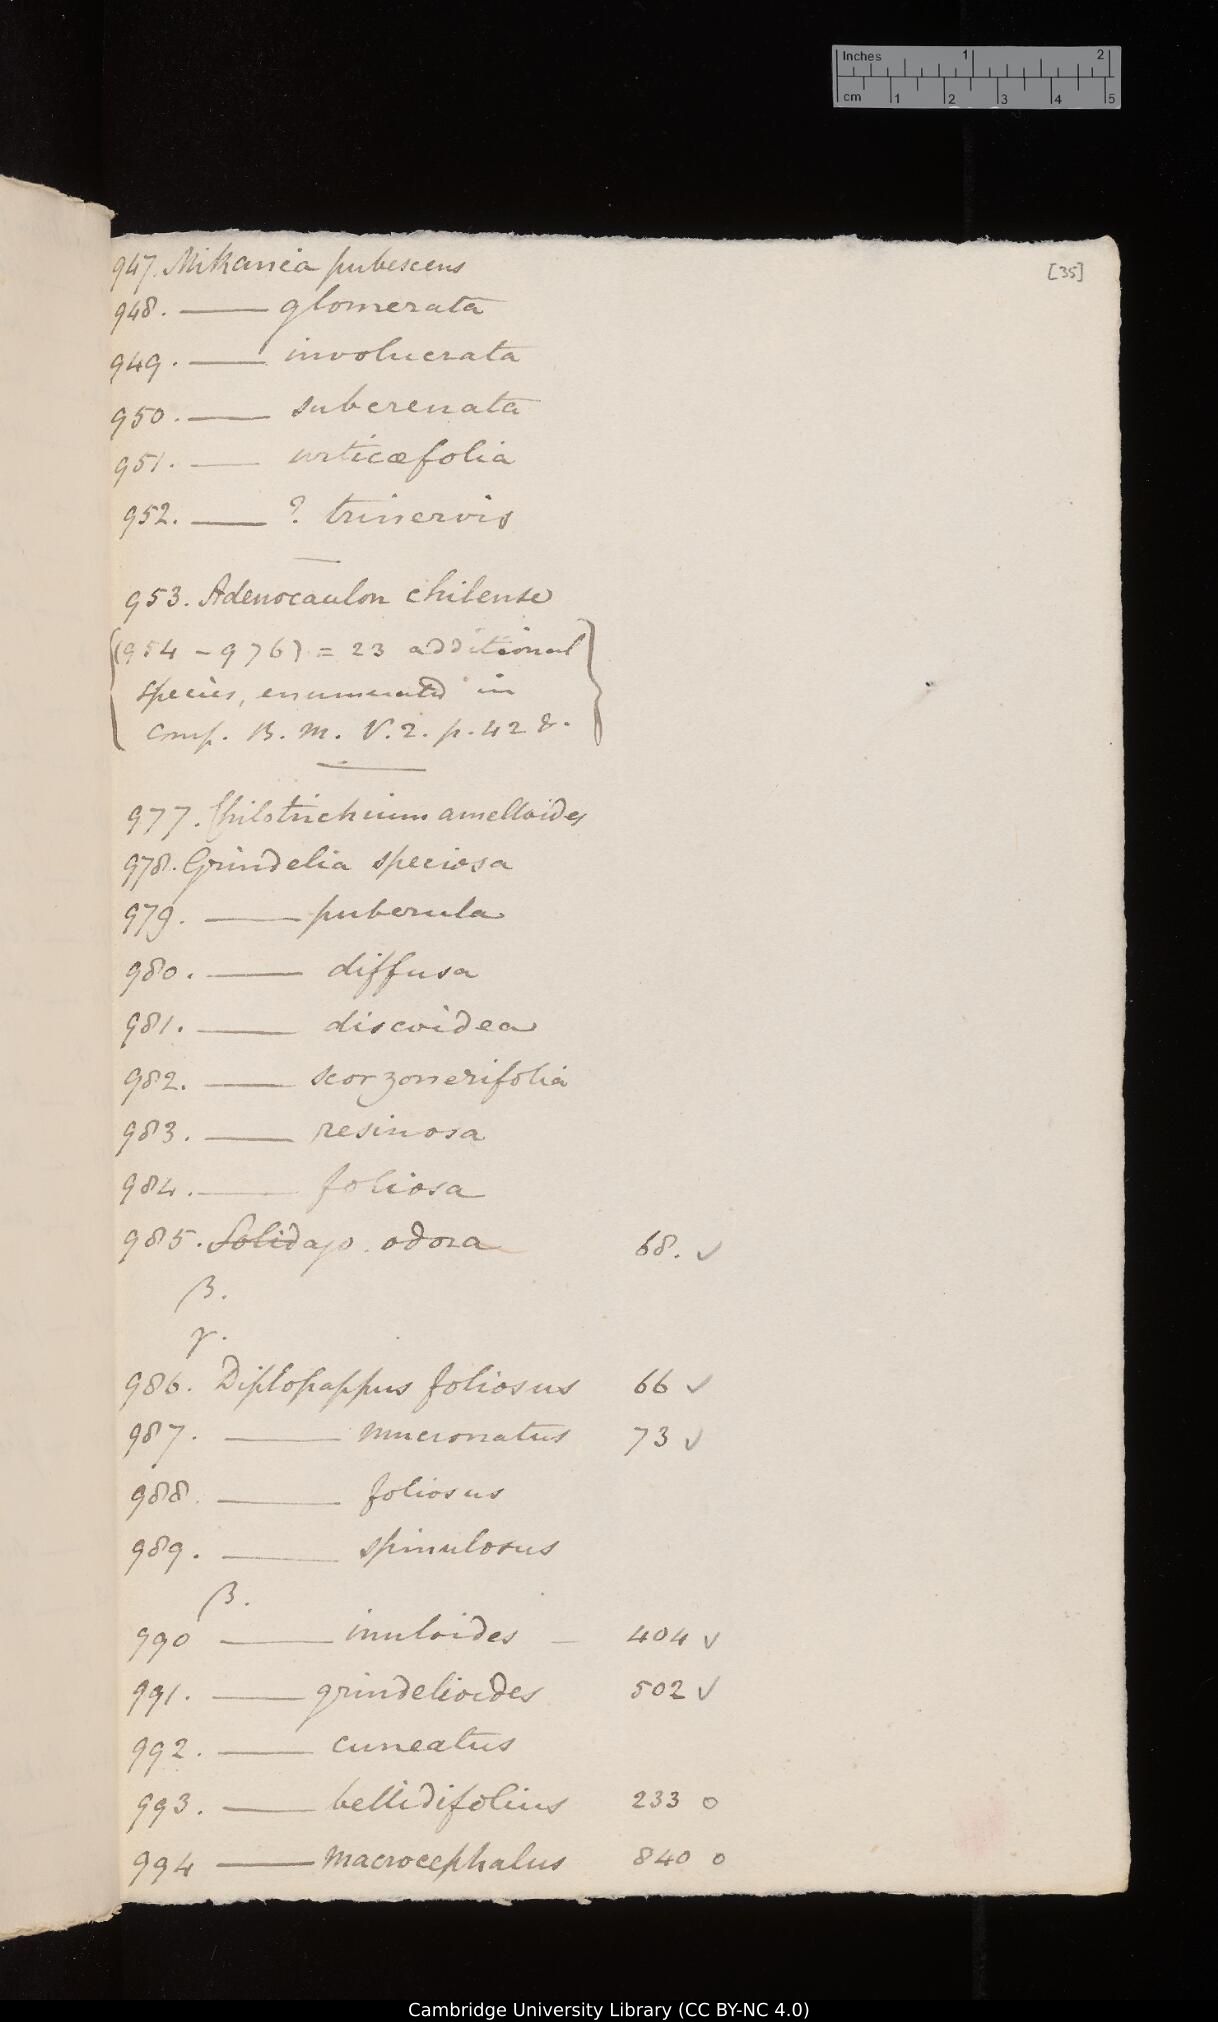 Inches 1 2
cm 1 2 3 4 5
[35]
947. Mikania pubescens
948. —— glomerata
949. —— involucrata
950. —— subcrenata
951. —— urticæfolia
952. —— ? trinervis
953. Adenocaulon chilense
(954 - 976) = 23 additional
species, enumerated in
Comp. B. M. V. 2. p. 42 &.
977. Chilotrichium amelloides
978. Grindelia speciosa
979. —— puberula
980. —— diffusa
981. —— discoidea
982. —— scorzonerifolia
983. —— resinosa
984. —— foliosa
985. Solidago odora 68. ✓
β.
γ.
986. Diplopappus foliosus 66 ✓
987. —— mucronatus 73 ✓
988. —— foliosus
989. —— spinulosus
β.
990 —— inuloides — 404 ✓
991. —— grindelioides 502 ✓
992. —— cuneatus
993. —— bellidifolius 233 o
994 —— macrocephalus 840 o
Cambridge University Library (CC BY-NC 4.0)